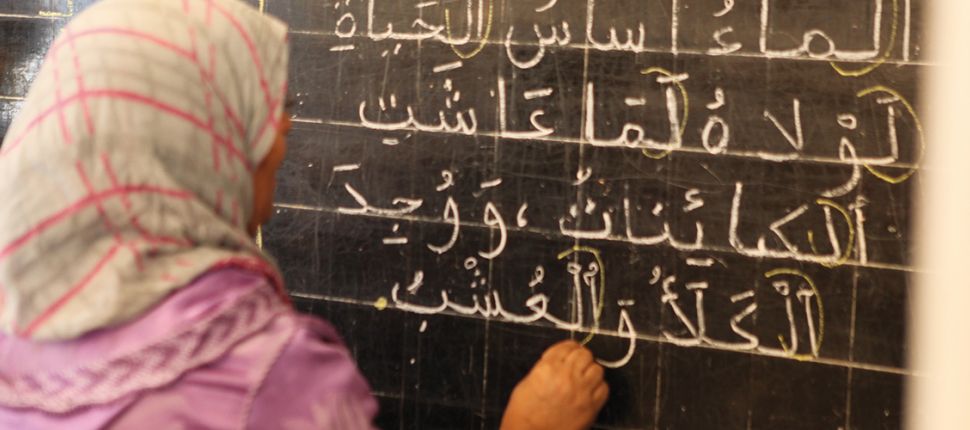 الماءُ أساسُ الحَياةِ
لَوْلاهُ لَمَا عَاشَتِ
الكَائِناتُ، وَوُجِدَ
اَلْكَلَأُ وَالْعُشْبُ